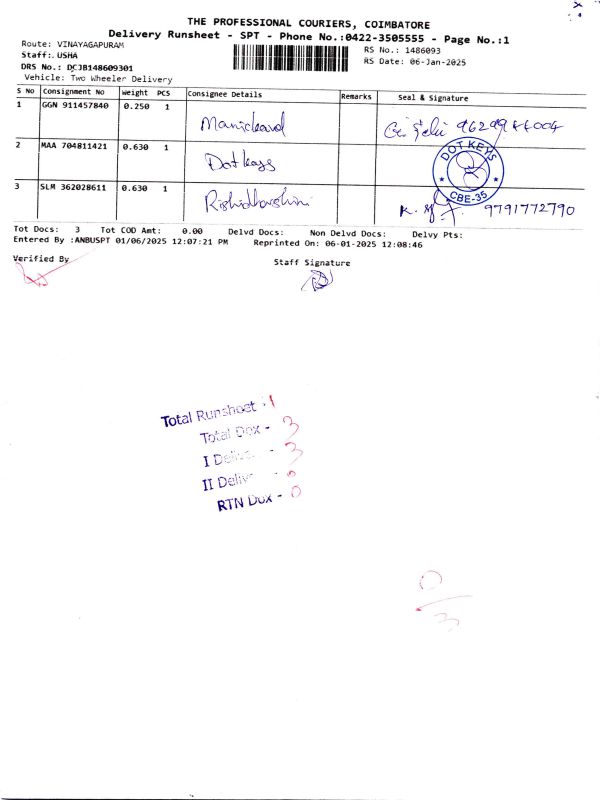 THE PROFESSIONAL COURIERS, COIMBATORE
Delivery Runsheet - SPT - Phone No.:0422-3505555 - Page No.:1
Route: VINAYAGAPURAM
RS No.: 1486093
Staff:. USHA
RS Date: 06-Jan-2025
DRS No.: DCJB148609301
Vehicle: Two Wheeler Delivery
S No Consignment No Weight PCS Consignee Details Remarks Seal & Signature
1 GGN 911457840 0.250 1
Manickavel
2 MAA 704811421 0.630 1 Dotkeys
DOT KEYS
CBE-35
3 SLM 362028611 0.630 1 Rishidharshini
9791772790
Tot Docs: 3 Tot COD Amt: 0.00 Delvd Docs: Non Delvd Docs: Delvy Pts:
Entered By :ANBUSPT 01/06/2025 12:07:21 PM Reprinted On: 06-01-2025 12:08:46
Verified By
Staff Signature
Total Runsheet - 1
Total Dox - 3
I - 3
II - 0
RTN Dox - 0
0
3